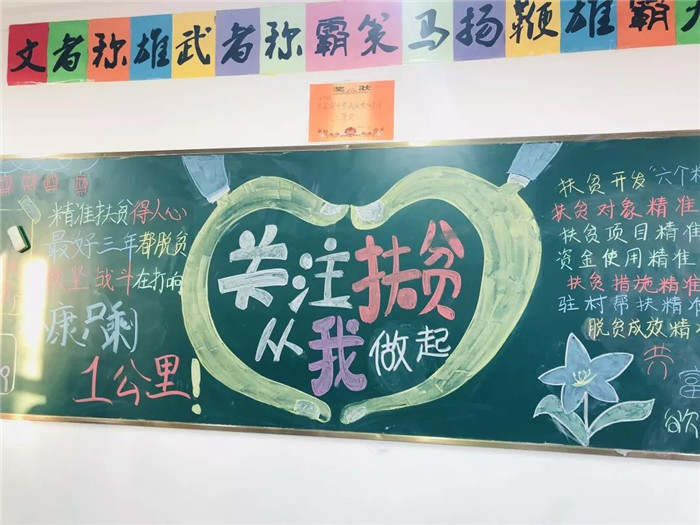 文者称雄武者称霸策马扬鞭雄霸
奖状
精准扶贫得人心
最好三年都脱贫
坚战斗在打响
康只剩
1公里!
关注扶贫
从我做起
扶贫开发"六个精
扶贫对象精准
扶贫项目精准
资金使用精准
扶贫措施精准
驻村帮扶精准
脱贫成效精
共
富
欲